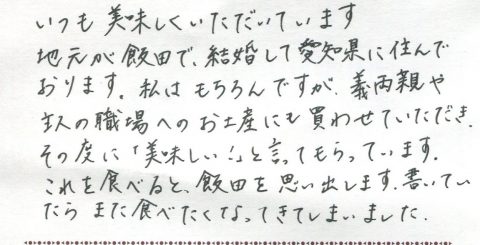 いつも美味しくいただいています
地元が飯田で、結婚して愛知県に住んで
おります。私はもちろんですが、義両親や
主人の職場へのお土産にも買わせていただき、
その度に「美味しい！」と言ってもらっています。
これを食べると、飯田を思い出します。書いてい
たらまた食べたくなってきてしまいました。